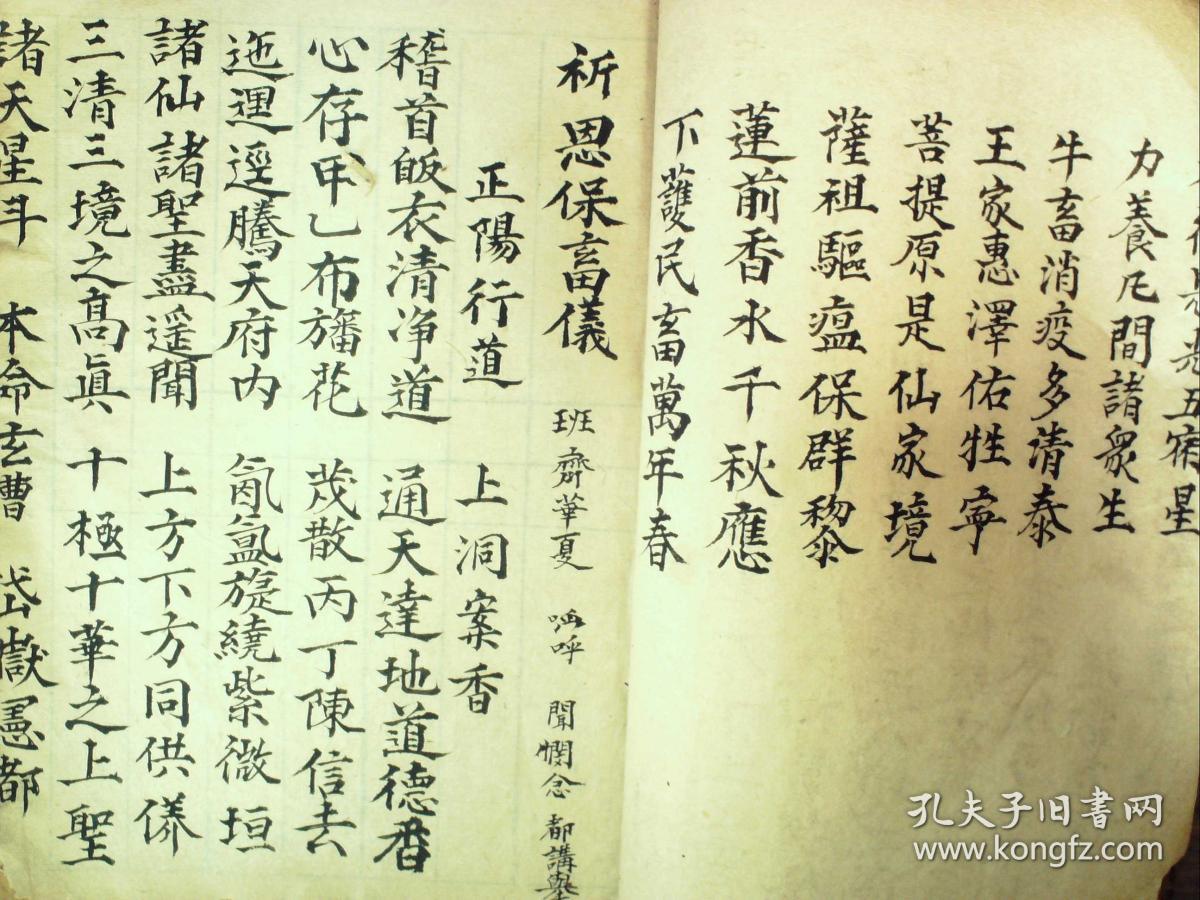 光五宿星
力養凡間諸衆生
牛畜消疫多清泰
王家惠澤佑牲寕
菩提原是仙家境
薩祖驅瘟保群物
蓮前香水千秋應
下護民畜萬年春
祈恩保畜儀
班齋華夏 聞憫念 都講舉
正陽行道 上洞案香
稽首皈衣清净道 通天達地道德香
心存甲乙布旛花 茂散丙丁陳信去
迤邐逕騰天府内 氤氲旋繞紫微垣
諸仙諸聖盡遥聞 上方下方同供养
三清三境之髙眞 十極十華之上聖
諸天星斗 本命玄曹 岱嶽 都
孔夫子旧书网
www.kongfz.com